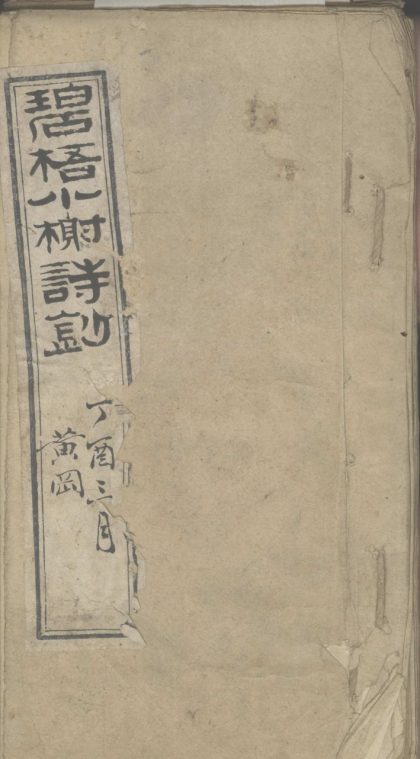 碧梧小榭詩鈔
丁酉三月
黃岡